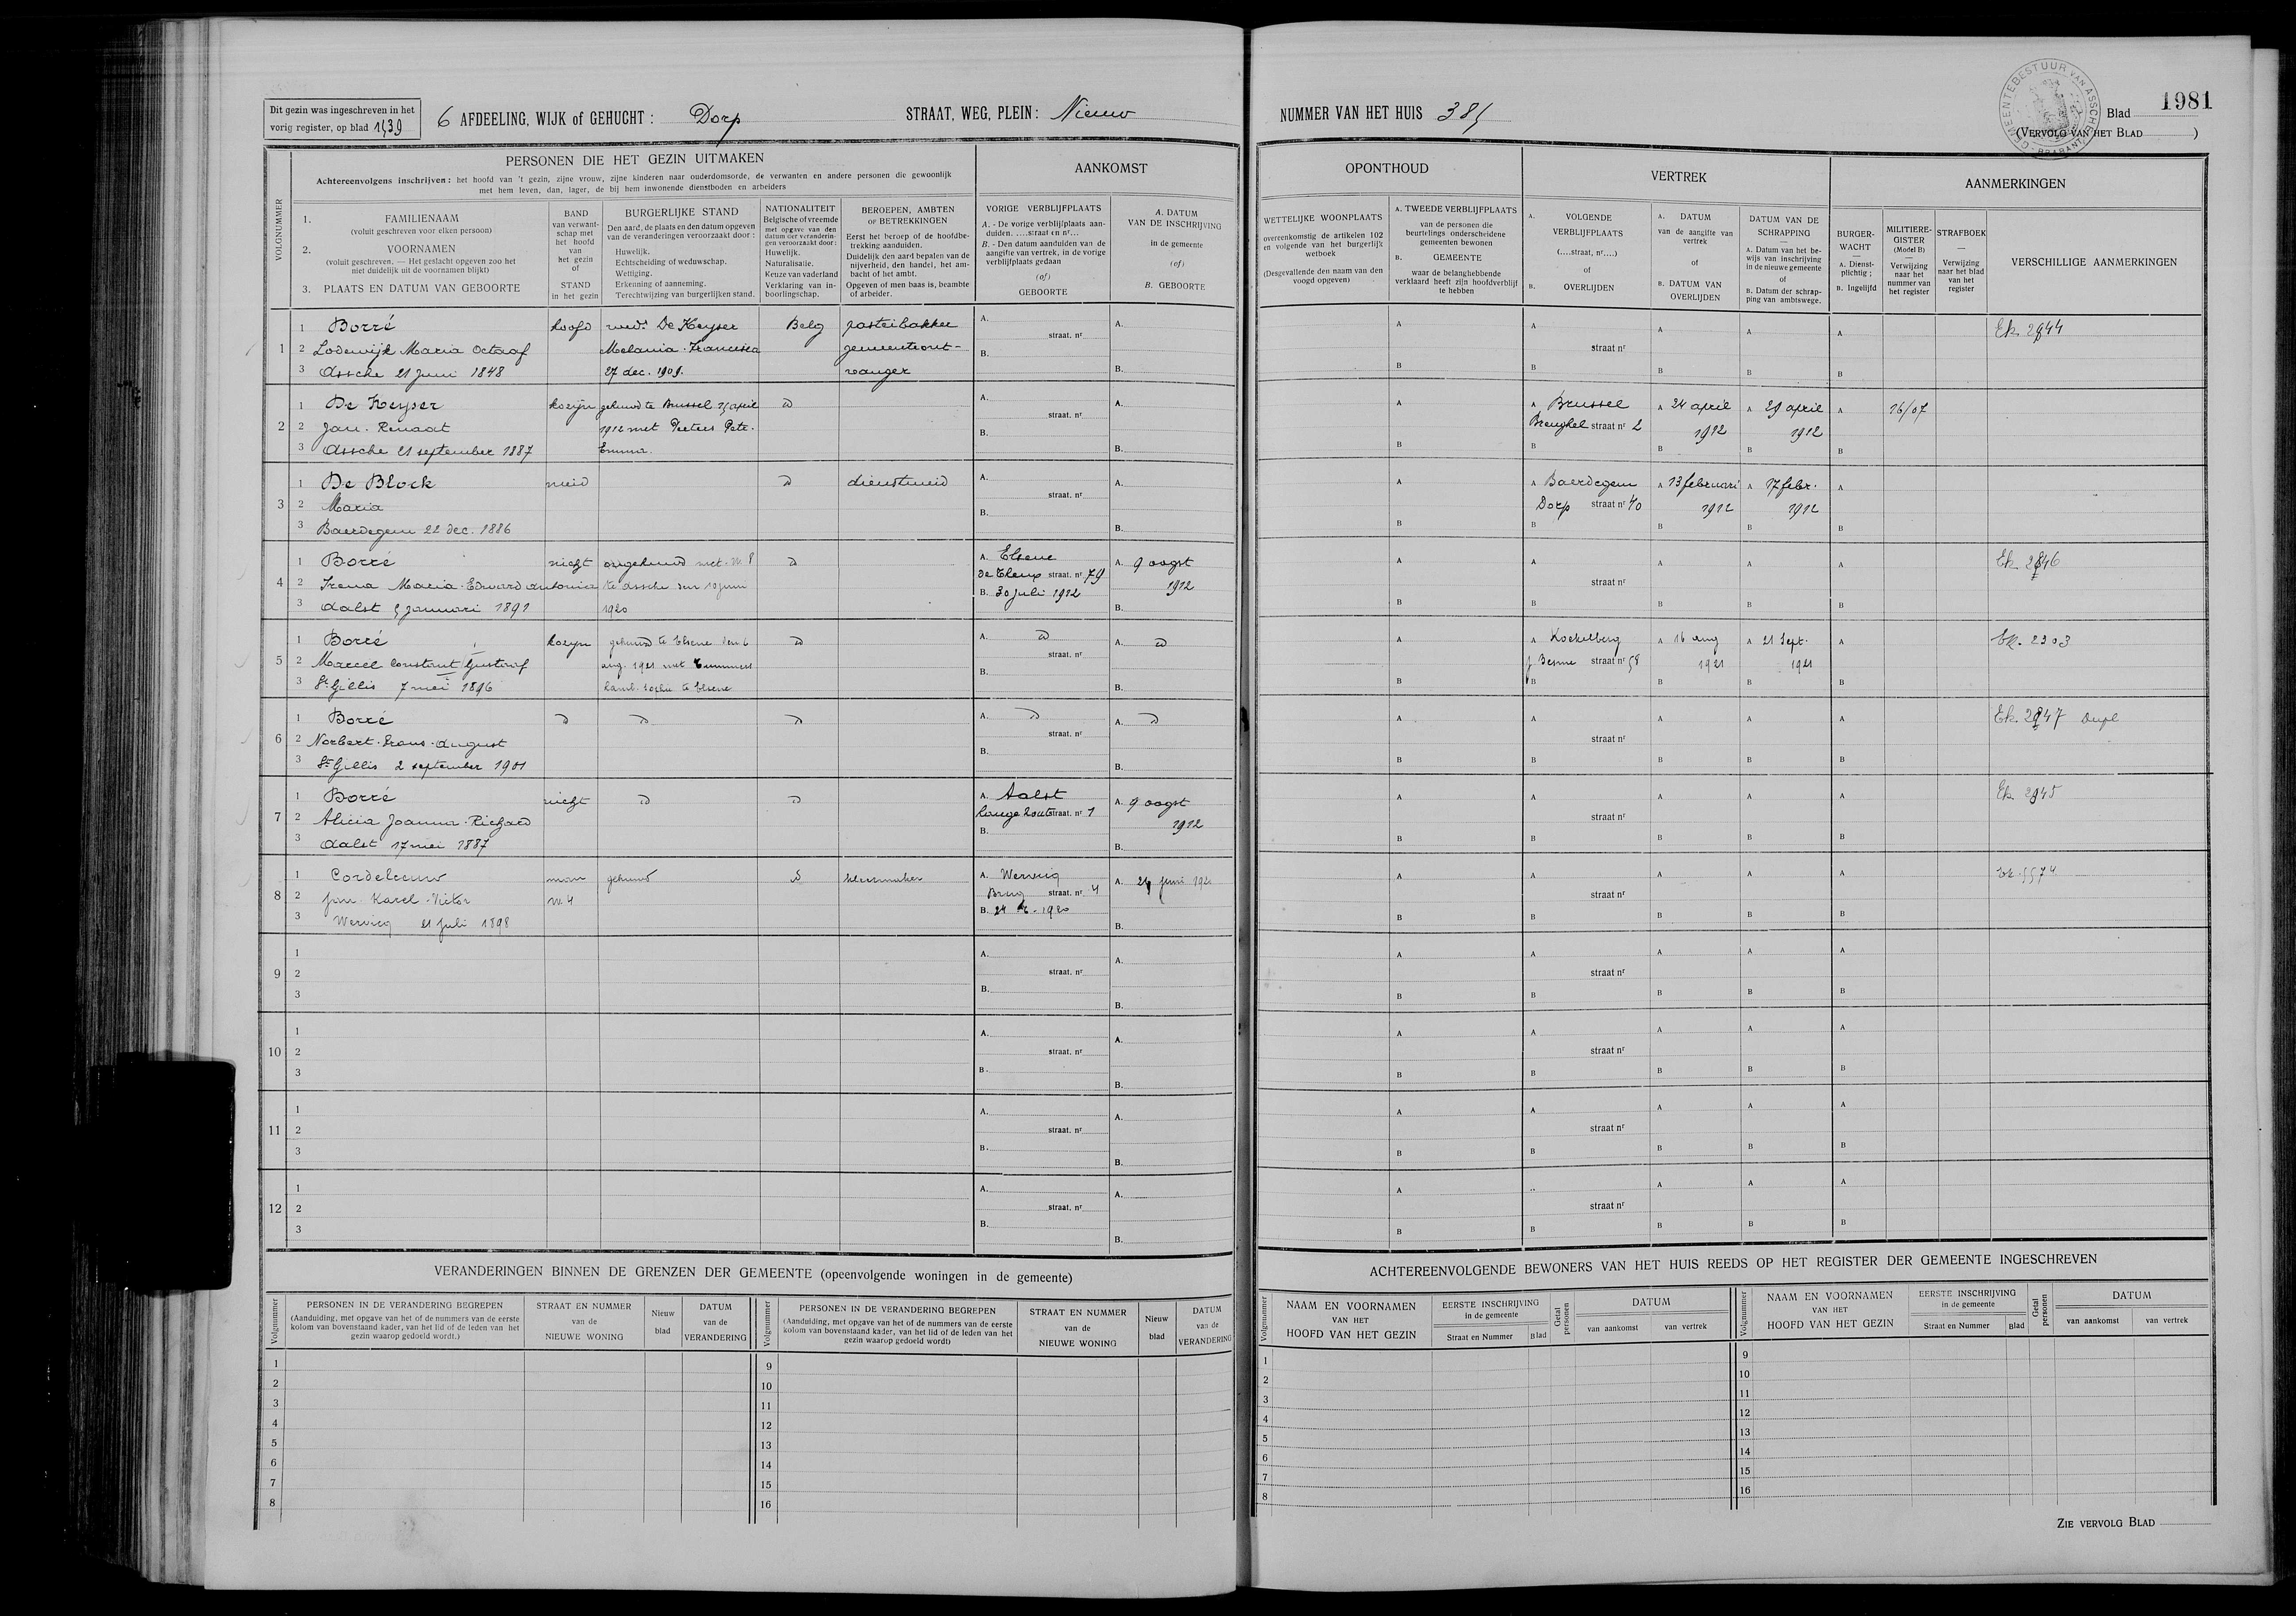 Dit gezin was ingeschreven in het
vorig register, op blad 1539
6 AFDEELING, WIJK of GEHUCHT : Dorp
STRAAT, WEG, PLEIN : Nieuw
NUMMER VAN HET HUIS 385
GEMEENTEBESTUUR VAN ASSCHE - BRABANT
Blad 1981
(VERVOLG VAN HET BLAD )
VOLGNUMMER
PERSONEN DIE HET GEZIN UITMAKEN
Achtereenvolgens inschrijven : het hoofd van 't gezin, zijne vrouw, zijne kinderen naar ouderdomsorde, de verwanten en andere personen die gewoonlijk
met hem leven, dan, lager, de bij hem inwonende dienstboden en arbeiders
1. FAMILIENAAM
(voluit geschreven voor elken persoon)
2. VOORNAMEN
(voluit geschreven. — Het geslacht opgeven zoo het
niet duidelijk uit de voornamen blijkt)
3. PLAATS EN DATUM VAN GEBOORTE
BAND
van verwant-
schap met
het hoofd
van
het gezin
of
STAND
in het gezin
BURGERLIJKE STAND
Den aard, de plaats en den datum opgeven
van de veranderingen veroorzaakt door :
Huwelijk.
Echtscheiding of weduwschap.
Wettiging.
Erkenning of aanneming.
Terechtwijzing van burgerlijken stand.
NATIONALITEIT
Belgische of vreemde
met opgave van den
datum der veranderin-
gen veroorzaakt door :
Huwelijk.
Naturalisatie.
Keuze van vaderland
Verklaring van in-
boorlingschap.
BEROEPEN, AMBTEN
OF BETREKKINGEN
Eerst het beroep of de hoofdbe-
trekking aanduiden.
Duidelijk den aard bepalen van de
nijverheid, den handel, het am-
bacht of het ambt.
Opgeven of men baas is, beambte
of arbeider.
AANKOMST
VORIGE VERBLIJFPLAATS
A. - De vorige verblijfplaats aan-
duiden. ....straat en nr...
B. - Den datum aanduiden van de
aangifte van vertrek, in de vorige
verblijfplaats gedaan
(of)
GEBOORTE
A. DATUM
VAN DE INSCHRIJVING
in de gemeente
(of)
B. GEBOORTE
OPONTHOUD
WETTELIJKE WOONPLAATS
overeenkomstig de artikelen 102
en volgende van het burgerlijk
wetboek
(Desgevallende den naam van den
voogd opgeven)
A. TWEEDE VERBLIJFPLAATS
van de personen die
beurtelings onderscheidene
gemeenten bewonen
B. GEMEENTE
waar de belanghebbende
verklaard heeft zijn hoofdverblijf
te hebben
VERTREK
A. VOLGENDE
VERBLIJFPLAATS
(....straat, nr....)
of
B. OVERLIJDEN
A. DATUM
van de aangifte van
vertrek
of
B. DATUM VAN
OVERLIJDEN
DATUM VAN DE
SCHRAPPING
A. Datum van het be-
wijs van inschrijving
in de nieuwe gemeente
of
B. Datum der schrap-
ping van ambtswege.
AANMERKINGEN
BURGER-
WACHT
A. Dienst-
plichtig ;
of
B. Ingelijfd
MILITIERE-
GISTER
(Model B)
Verwijzing
naar het
nummer van
het register
STRAFBOEK
Verwijzing
naar het blad
van het
register
VERSCHILLIGE AANMERKINGEN
1 1 Borré hoofd wedr De Keyser Belg pasteibakker A. straat. nr A. Ek 2844
2 Lodewijk Maria Octaaf Melania Francisca gemeenteont-
3 Assche 21 juni 1848 27 dec. 1909. vanger
2 1 De Keyser kozijn gehuwd te Brussel 25 april A Brussel A 24 april A 29 april 16/07
2 Jan Renaat 1912 met Peeters Pete. Breughel straat nr 2 1912 1912
3 Assche 21 september 1887 Emma.
3 1 De Block meid dienstmeid A Baerdegem A 13 februari A 17 febr.
2 Maria Dorp straat nr 40 1912 1912
3 Baerdegem 22 dec. 1886
4 1 Borré nicht gehuwd met N. 8 A. Elsene A. 9 oogst Ek 2846
2 Irena Maria Edward Antonia te Assche den 10 juni straat. nr 79 1912
3 Aalst 5 januari 1891 1920 B. 30 juli 1912
5 1 Borré kozyn gehuwd te Elsene den 6 A Koekelberg A 16 aug A 21 Sept. Ek. 2303
2 Marcel Constant Gustaaf aug. 1921 met straat nr 58 1921 1921
3 St Gillis 7 mei 1896 te Elsene
6 1 Borré Ek. 2847 Dupl
2 Norbert Frans August
3 St Gillis 2 september 1901
7 1 Borré nicht A. Aalst A. 9 oogst Ek. 2845
2 Alicia Joanna Richard Lange Zout straat. nr 1 1912
3 Aalst 17 mei 1887
8 1 Cordeleeuw man gehuwd kleermaker A. Wervicq A. 24 juni 192 Ek. 5574
2 Jan Karel Victor N. 4 Brug straat. nr 4
3 Wervicq 21 juli 1898 B. 24 1920
9
10
11
12
VERANDERINGEN BINNEN DE GRENZEN DER GEMEENTE (opeenvolgende woningen in de gemeente)
Volgnummer
PERSONEN IN DE VERANDERING BEGREPEN
(Aanduiding, met opgave van het of de nummers van de eerste
kolom van bovenstaand kader, van het lid of de leden van het
gezin waarop gedoeld wordt.)
STRAAT EN NUMMER
van de
NIEUWE WONING
Nieuw
blad
DATUM
van de
VERANDERING
Volgnummer
PERSONEN IN DE VERANDERING BEGREPEN
(Aanduiding, met opgave van het of de nummers van de eerste
kolom van bovenstaand kader, van het lid of de leden van het
gezin waarop gedoeld wordt)
STRAAT EN NUMMER
van de
NIEUWE WONING
Nieuw
blad
DATUM
van de
VERANDERING
1 9
2 10
3 11
4 12
5 13
6 14
7 15
8 16
ACHTEREENVOLGENDE BEWONERS VAN HET HUIS REEDS OP HET REGISTER DER GEMEENTE INGESCHREVEN
Volgnummer
NAAM EN VOORNAMEN
VAN HET
HOOFD VAN HET GEZIN
EERSTE INSCHRIJVING
in de gemeente
Straat en Nummer Blad
Getal personen
DATUM
van aankomst van vertrek
Volgnummer
NAAM EN VOORNAMEN
VAN HET
HOOFD VAN HET GEZIN
EERSTE INSCHRIJVING
in de gemeente
Straat en Nummer Blad
Getal personen
DATUM
van aankomst van vertrek
1 9
2 10
3 11
4 12
5 13
6 14
7 15
8 16
ZIE VERVOLG BLAD